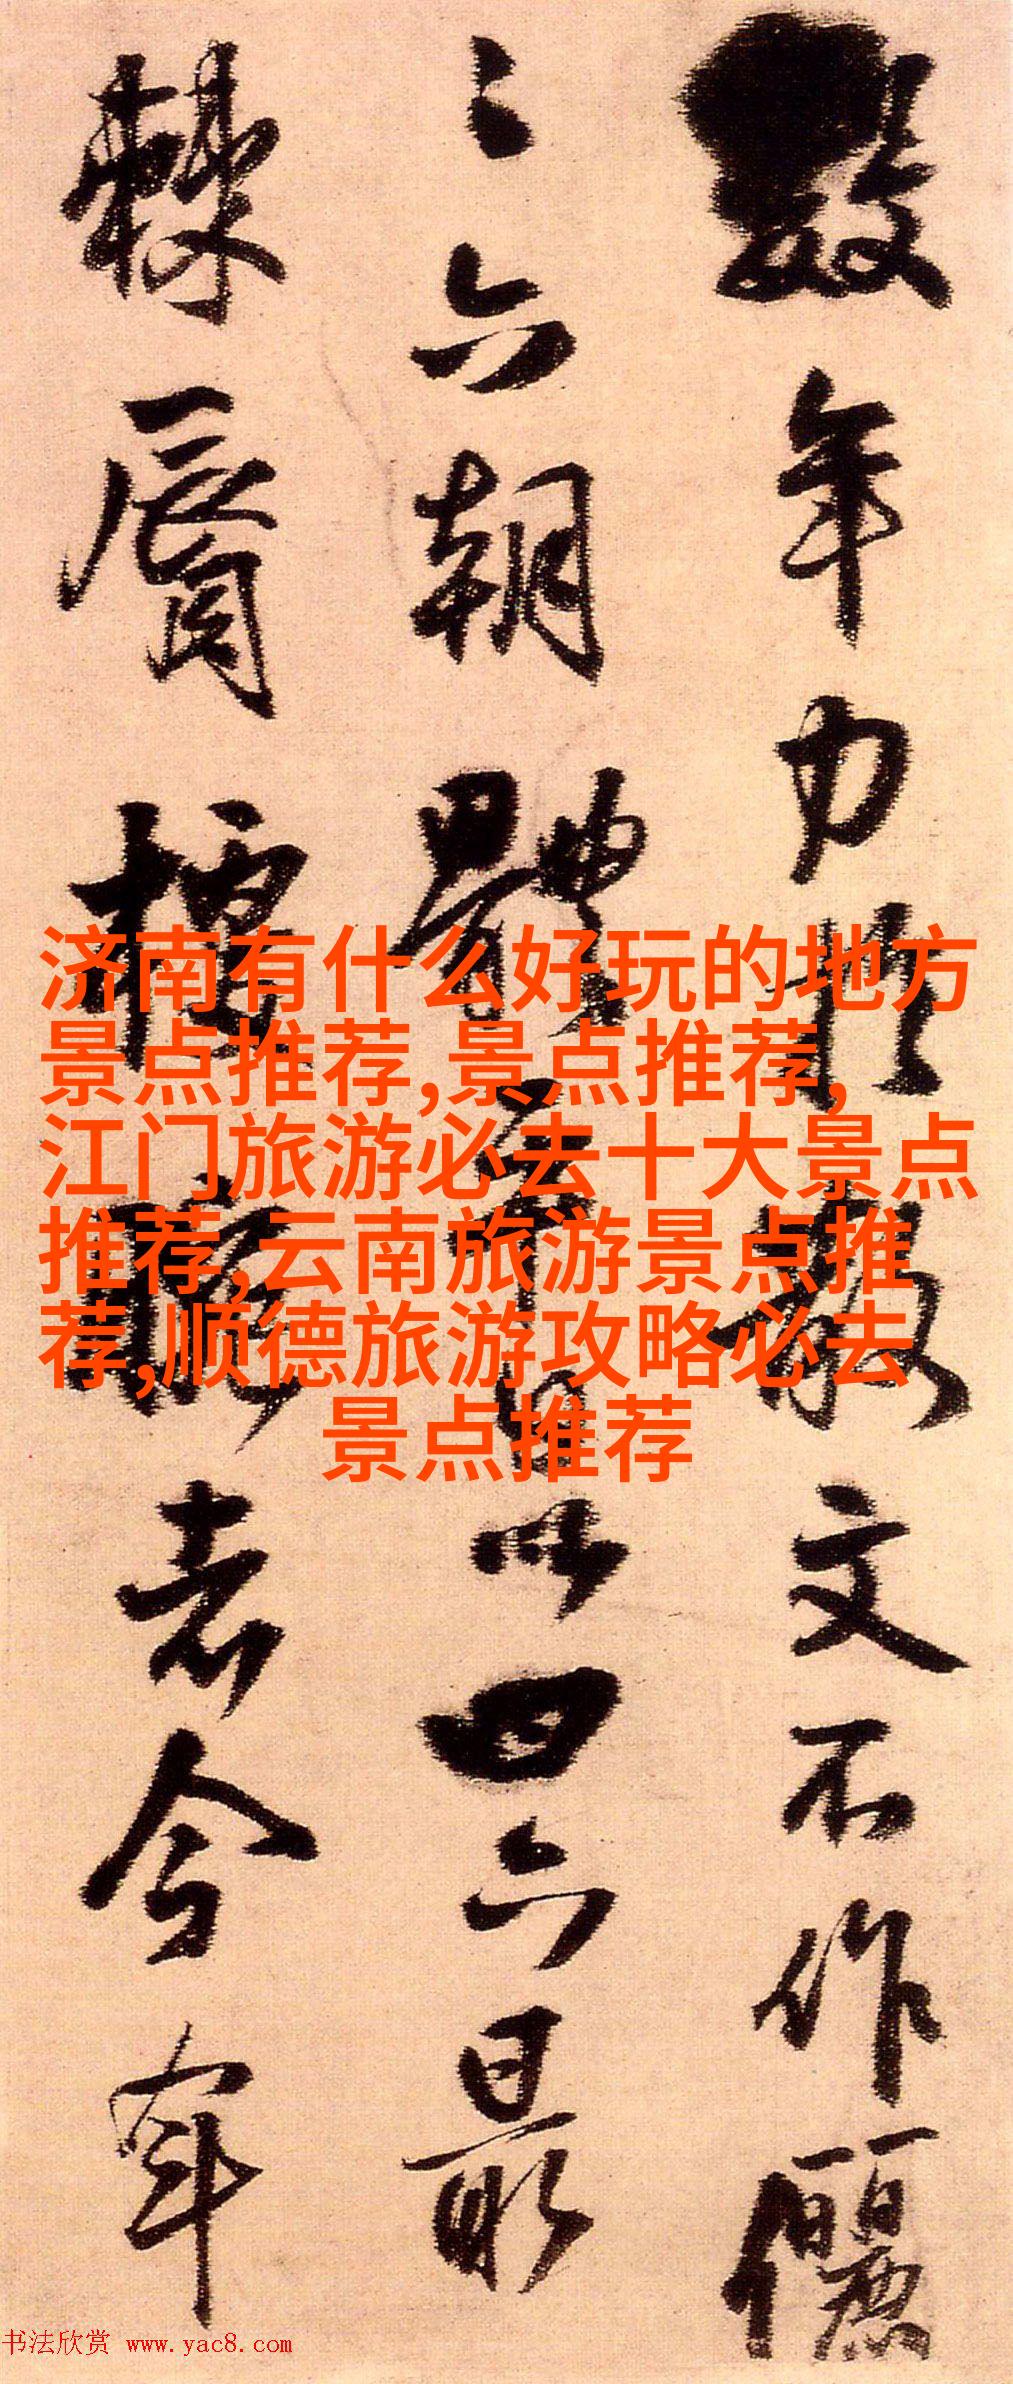 數年力散文不作儷
六朝體平日以四六最
棘脣老今年
济南有什么好玩的地方
景点推荐,景点推荐,
江门旅游必去十大景点
推荐,云南旅游景点推
荐,顺德旅游攻略必去
景点推荐
书法欣赏 www.yac8.com